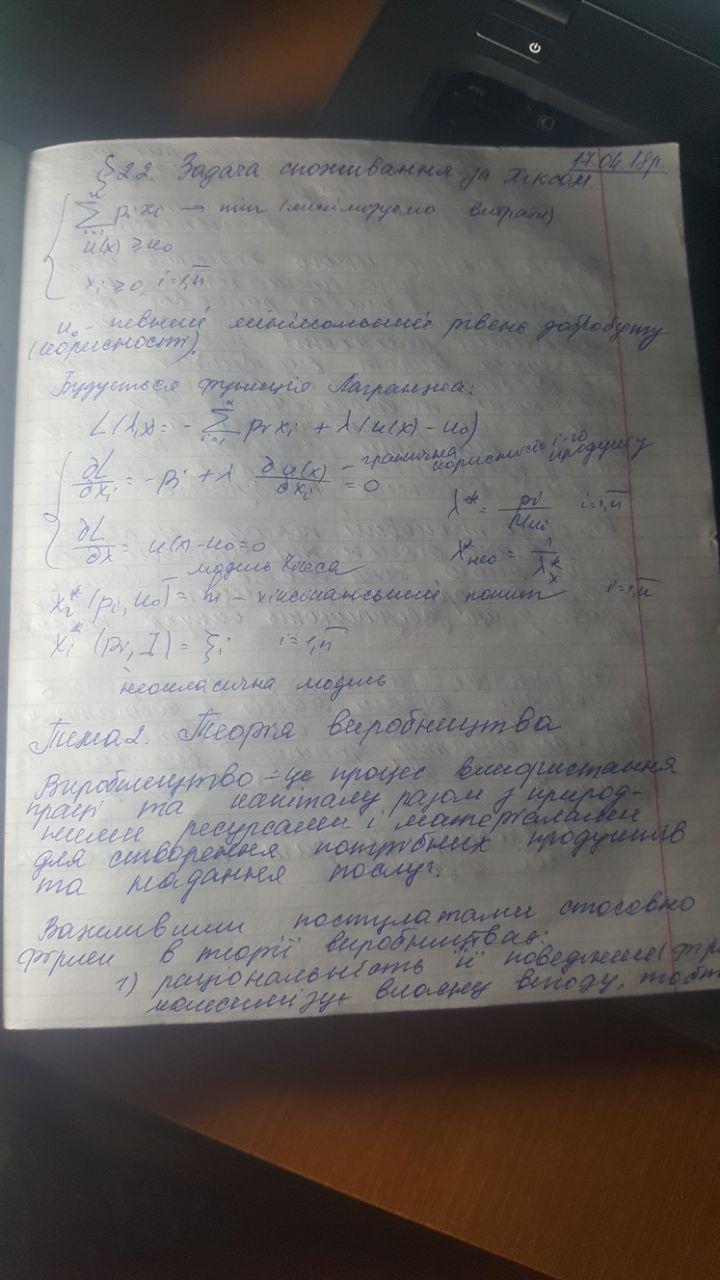 17.04.18р.
§ 22. Задача споживання за Хіксом
∑ pᵢxᵢ → min (мінімізуємо витрати)
u(x) ≥ u₀
xᵢ ≥ 0, i=1,n
u₀ - певний мінімальний рівень добробуту
(корисності).
Будується функція Лагранжа:
L(λ,x) = - ∑ pᵢxᵢ + λ(u(x) - u₀)
∂L/∂xᵢ = -pᵢ + λ ∂u(x)/∂xᵢ = 0 - гранична корисність i-го продукту
λ* = pᵢ/Muᵢ i=1,n
∂L/∂λ = u(x) - u₀ = 0
модель Хікса
xᵢ* (pᵢ, u₀) = hᵢ - хіксіанський попит i=1,n
xᵢ* (pᵢ, I) = ξᵢ i=1,n
неокласична модель
Тема 2. Теорія виробництва
Виробництво - це процес використання
праці та капіталу разом з природ-
ними ресурсами і матеріалами
для створення потрібних продуктів
та надання послуг.
Важливими постулатами стосовно
фірми в теорії виробництва є:
1) раціональність її поведінки
максимізує власну вигоду,